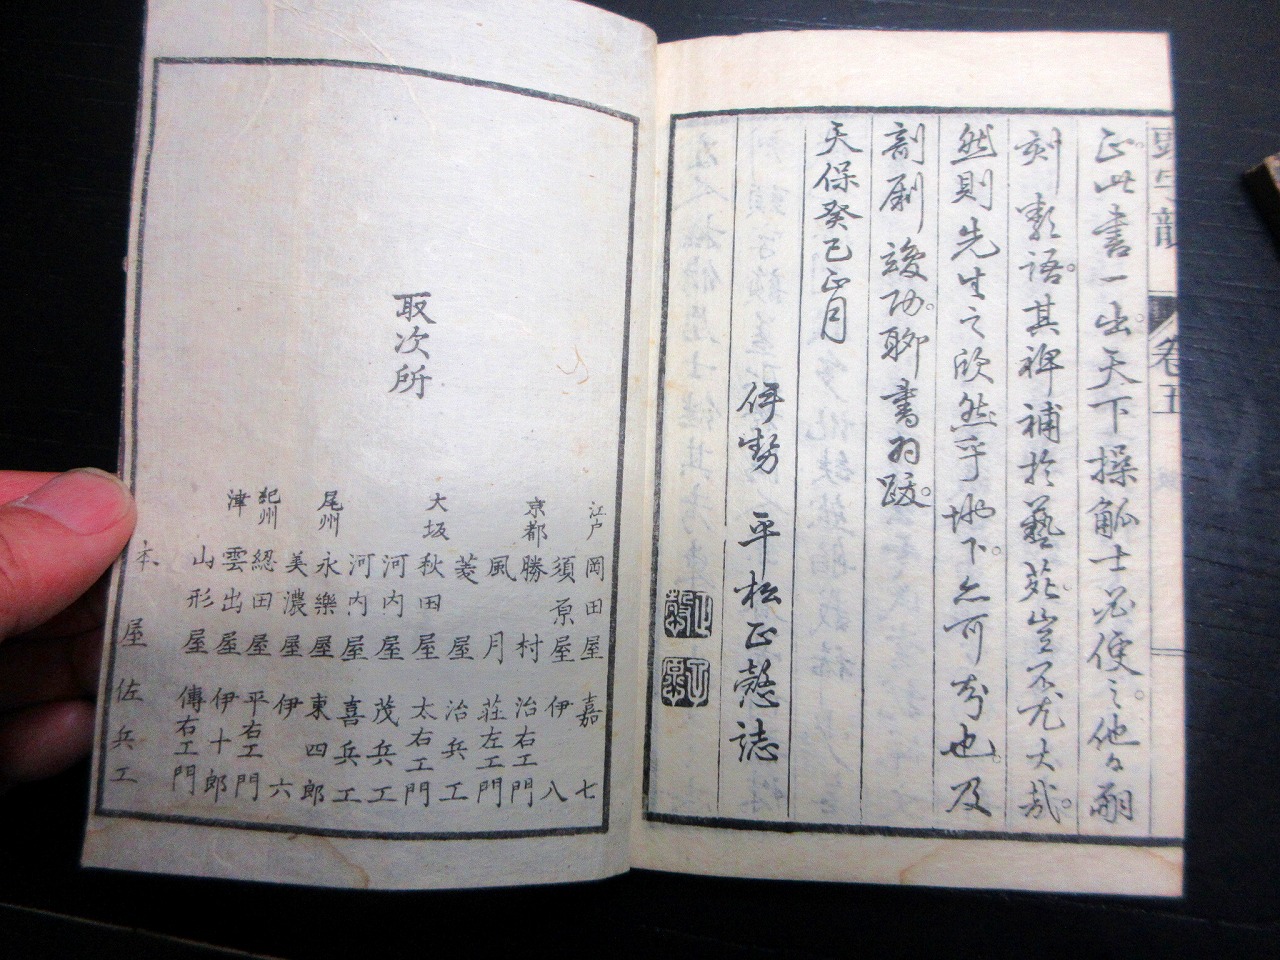 卷五
正此書一出天下操觚士必便之他日嗣
刻 語其裨補於藝苑豈不尤大哉
然則先生之欣然乎地下亦可知也及
剞劂竣功聊書為跋
天保癸巳正月
伊勢 平松正愨誌
取次所
江戸 岡田屋 嘉七
須原屋 伊八
京都 勝村 治右エ門
風月 荘左エ門
菱屋 治兵エ
大坂 秋田屋 太右エ門
河内屋 茂兵エ
河内屋 喜兵エ
尾州 永樂屋 東四郎
美濃屋 伊六
紀州 綛田屋 平右エ門
津 雲出屋 伊十郎
山形屋 傳右エ門
本屋 佐兵エ